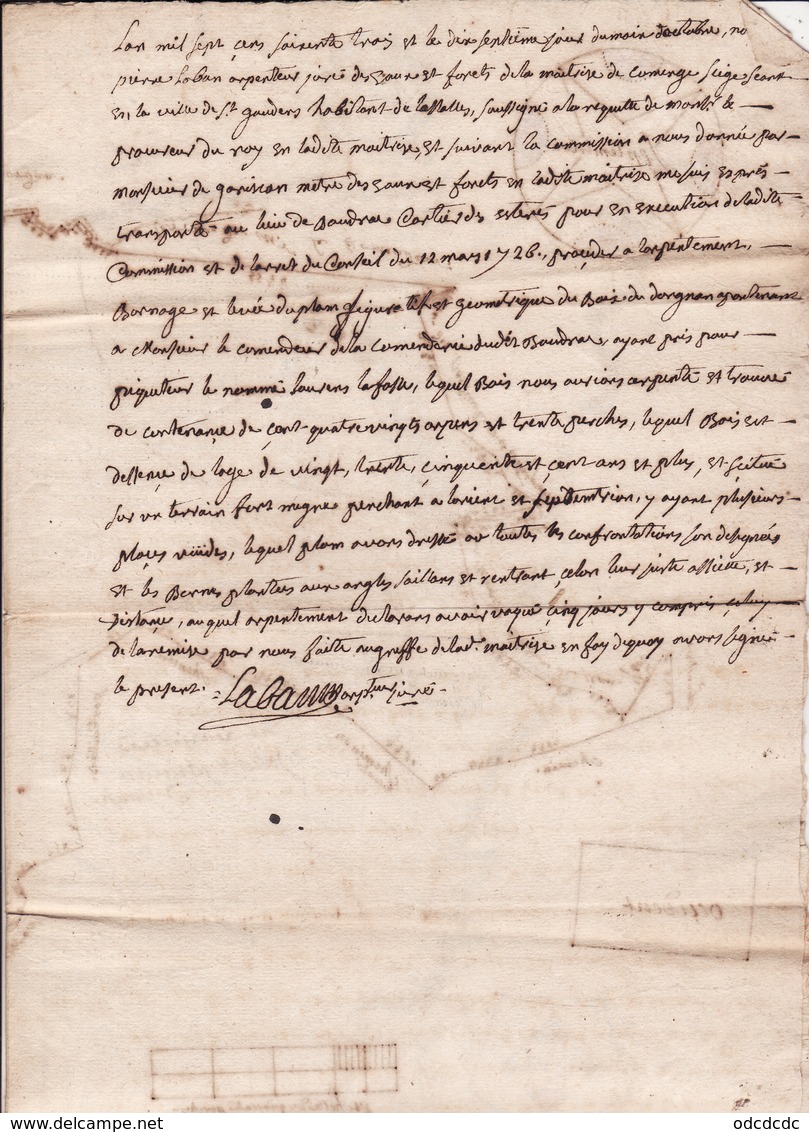 Lan mil sept cens soixente trois et le dix septième jour du mois doctobre, no
pierre Laban arpenteur juré des eaux et forets de la maitrise de comenge siège seant
en la ville de St gaudens habitant de Lassalles, soussigné a la requette de monsr le
procureur du roy en ladite maitrise, et suivant la commission a nous donnée par
monsieur de garissan metre des eaux et forets en ladite maitrise me suis exprés
transporté au lieu de Boudrac Cartier des esteres pour en execution de ladite
Commission et de larret du Conseil du 12 mars 1726., proceder a larpentement,
Bornage et levée du plam figuratif et geometrique du Bois du dorgnan apartenant
a Monsieur le comendeur de la comenderie dudit Boudrac, ayant pris pour
piqueteur le nommé Laurens lafosse, lequel Bois nous aurions arpenté et trouvé
de contenance de cent quatre vingts arpens et trente perches, lequel Bois est
dessence de lage de vingt, trente, cinquente et cent ans et plus, et scitué
sur un terrain fort megre penchant a lorient et septentrion, y ayant plusieurs
places vuides, lequel plam avons dressé ou toutes les confrontations son designées
et les Bornes plantées aux angles saillans et rentrant, celon leur juste assiette, et
distance, auquel arpentement declarons avoir vaqué cinq jours y compris celuy
de la remise par nous faite au greffe de lad. maitrise en foy de quoy avons signé
le present. = Laban arptur juré -
occident